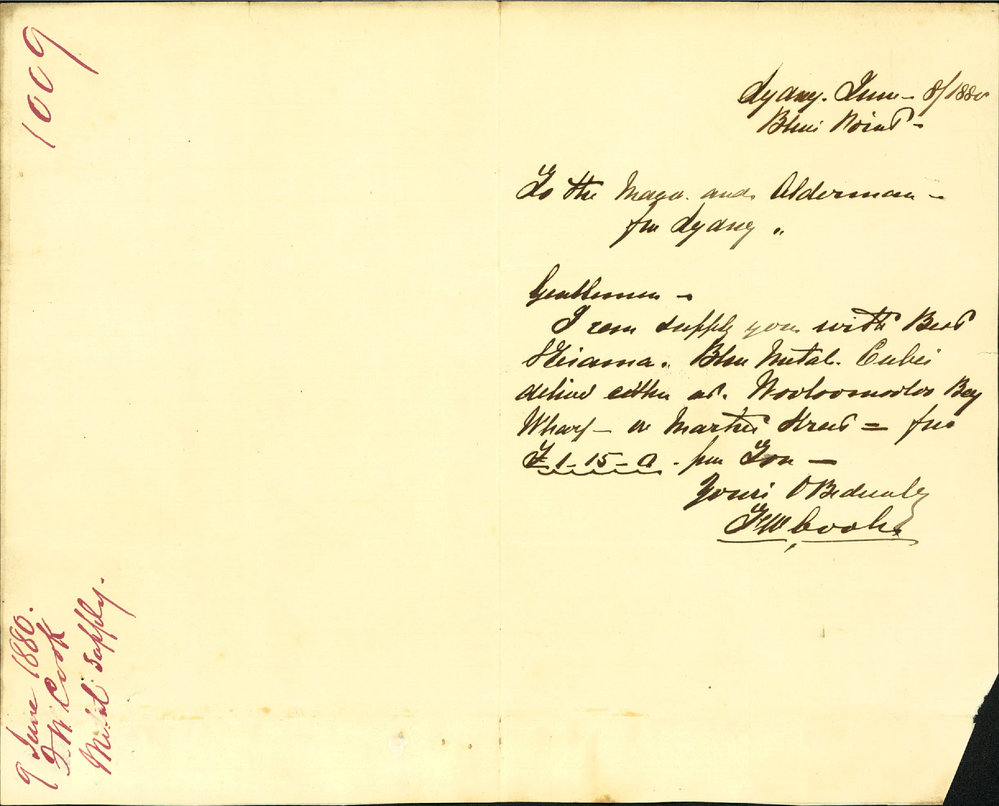 1009
Sydney. June - 8/1880
Blues Point -
To the Mayor and Alderman -
for Sydney "
Gentlemen -
I can supply you with Best
Kiama. Blue Metal. Cubes
deliver either at. Wooloomooloo Bay
Wharf - or Market Street = for
£1-15-0. per Ton -
Yours OBediently
F W Cook
9 June 1880.
F. W. Cook
Metal supply.